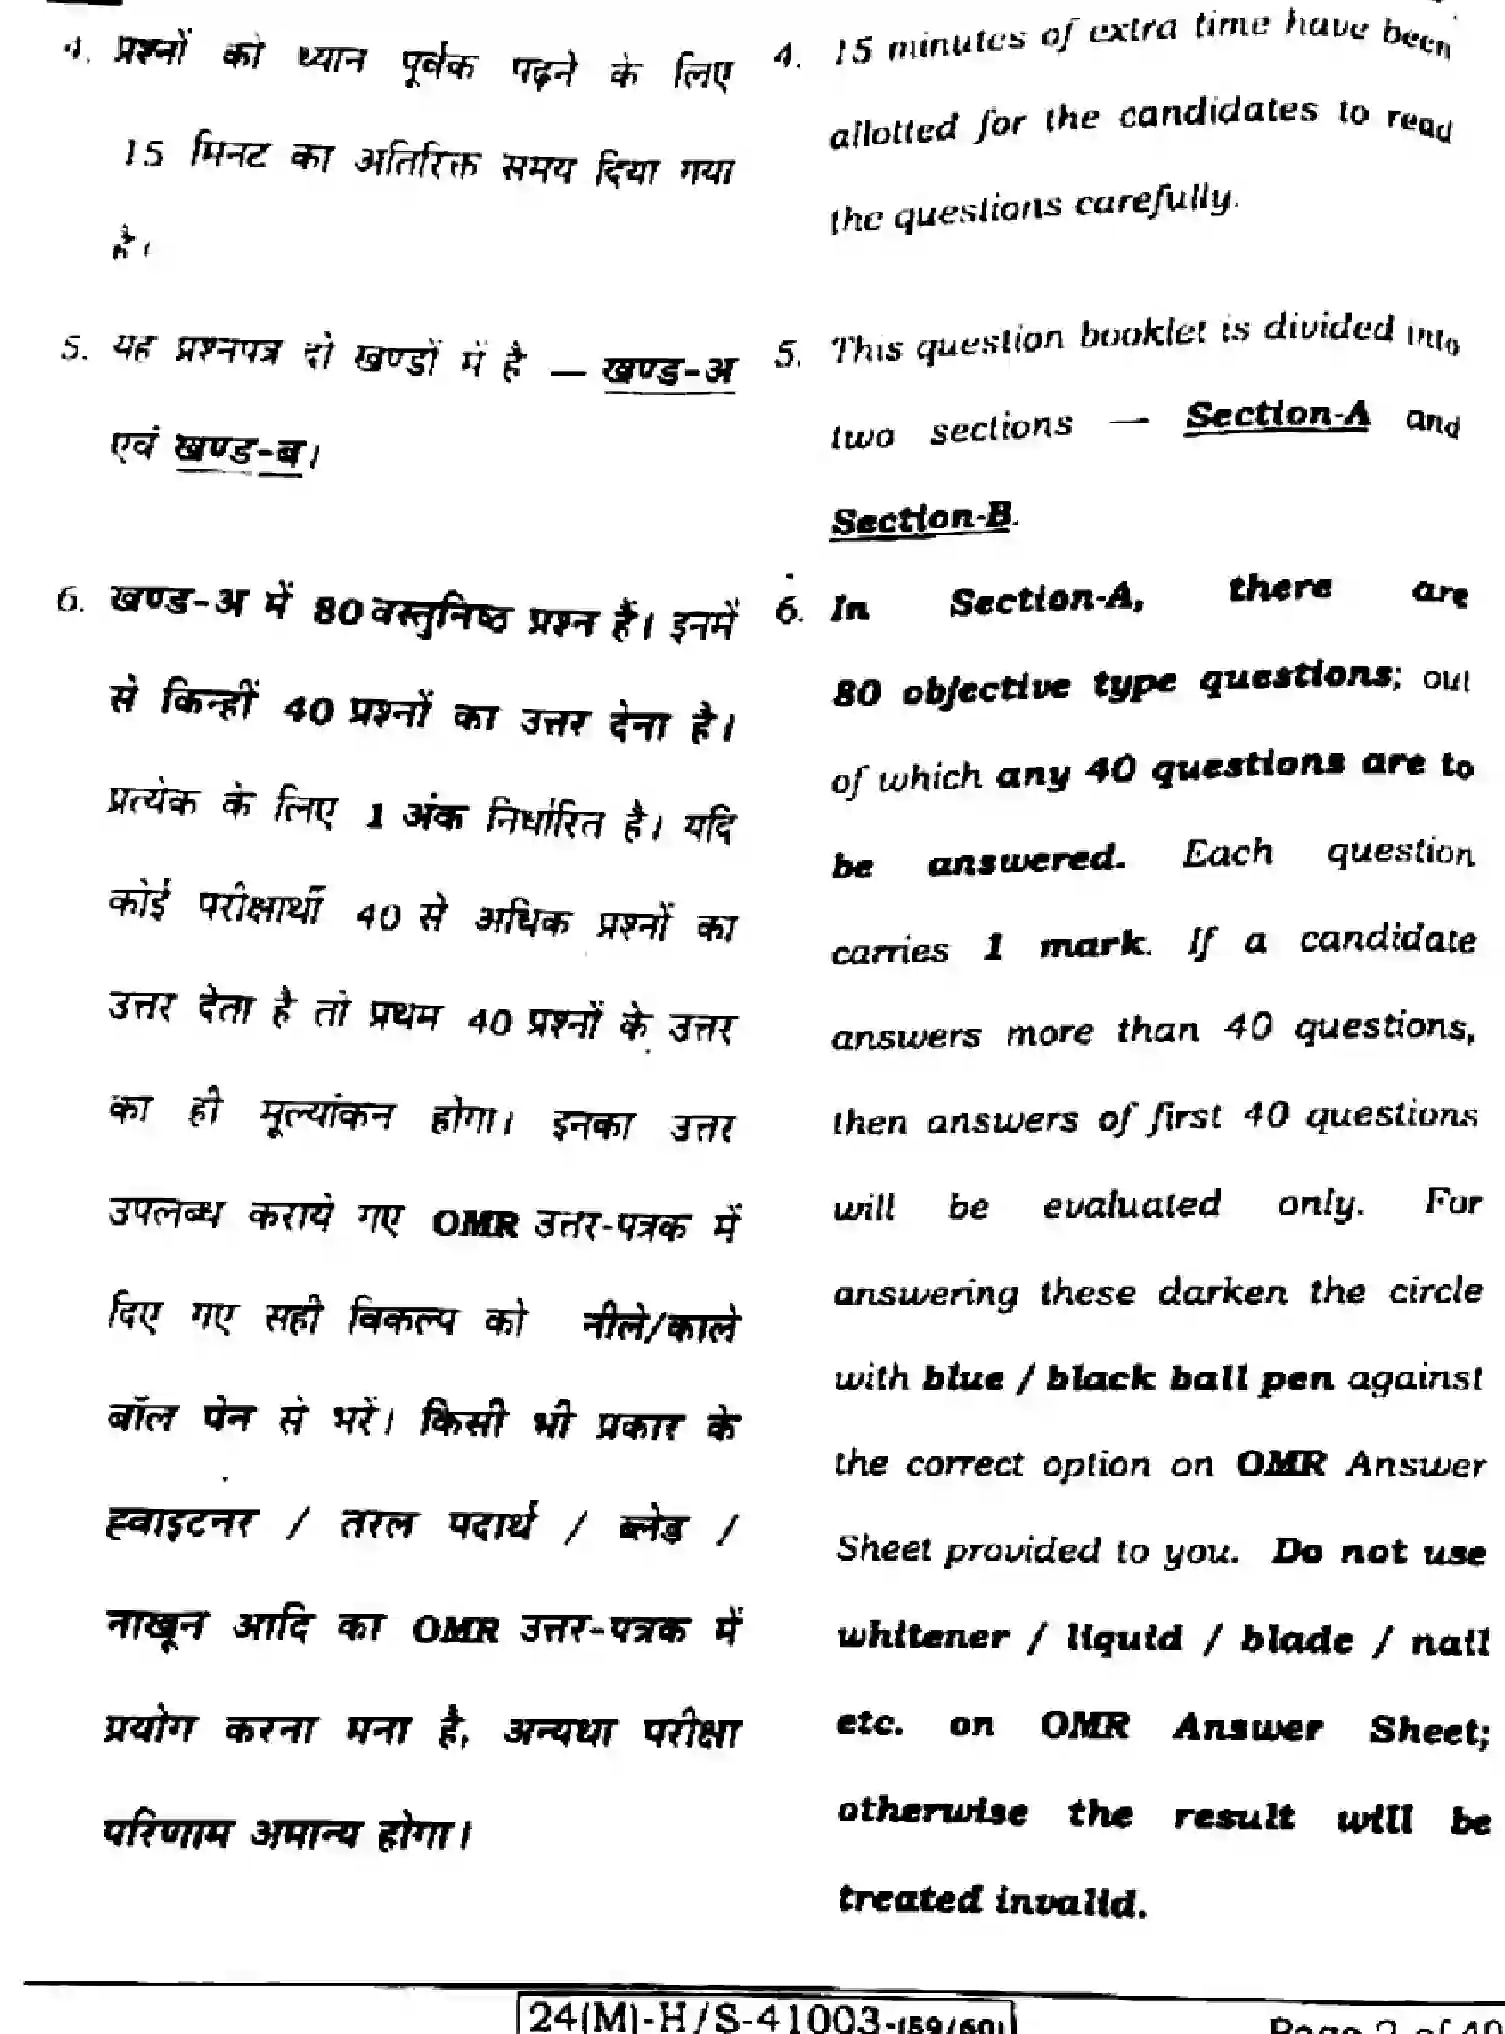 4. प्रश्नों को ध्यान पूर्वक पढ़ने के लिए
15 मिनट का अतिरिक्त समय दिया गया
है।
5. यह प्रश्नपत्र दो खण्डों में है — खण्ड-अ
एवं खण्ड-ब।
6. खण्ड-अ में 80 वस्तुनिष्ठ प्रश्न हैं। इनमें
से किन्हीं 40 प्रश्नों का उत्तर देना है।
प्रत्येक के लिए 1 अंक निर्धारित है। यदि
कोई परीक्षार्थी 40 से अधिक प्रश्नों का
उत्तर देता है तो प्रथम 40 प्रश्नों के उत्तर
का ही मूल्यांकन होगा। इनका उत्तर
उपलब्ध कराये गए OMR उत्तर-पत्रक में
दिए गए सही विकल्प को नीले/काले
बॉल पेन से भरें। किसी भी प्रकार के
ह्वाइटनर / तरल पदार्थ / ब्लेड /
नाखून आदि का OMR उत्तर-पत्रक में
प्रयोग करना मना है, अन्यथा परीक्षा
परिणाम अमान्य होगा।
4. 15 minutes of extra time have been
allotted for the candidates to read
the questions carefully.
5. This question booklet is divided into
two sections — Section-A and
Section-B.
6. In Section-A, there are
80 objective type questions; out
of which any 40 questions are to
be answered. Each question
carries 1 mark. If a candidate
answers more than 40 questions,
then answers of first 40 questions
will be evaluated only. For
answering these darken the circle
with blue / black ball pen against
the correct option on OMR Answer
Sheet provided to you. Do not use
whitener / liquid / blade / nail
etc. on OMR Answer Sheet;
otherwise the result will be
treated invalid.
24(M)-H/S-41003-(59/60)
Page 2 of 40